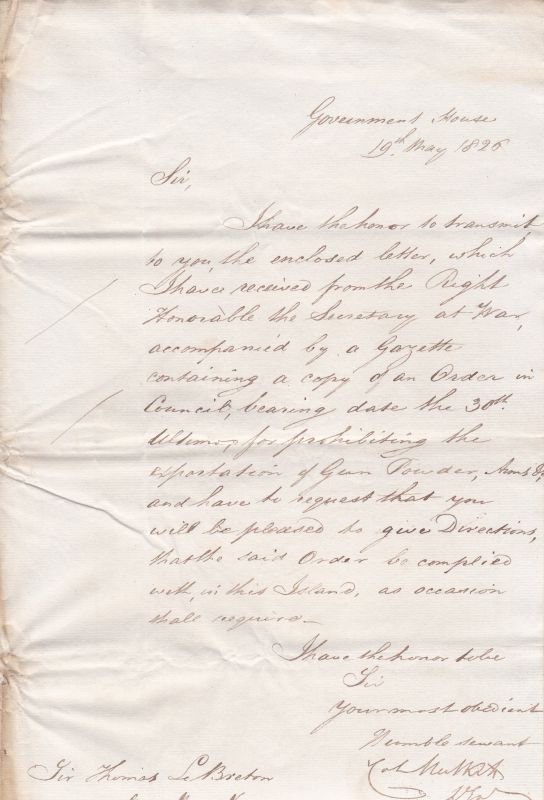 Government House
19th May 1826
Sir,
I have the honor to transmit
to you, the enclosed letter, which
I have received from the Right
Honorable the Secretary at War,
accompanied by a Gazette
containing a copy of an Order in
Council, bearing date the 30th
Ultimo, for prohibiting the
exportation of Gun Powder, Arms &c
and have to request that you
will be pleased to give Directions,
that the said Order be complied
with, in this Island, as occasion
shall require.
I have the honor to be
Sir
Your most obedient
Humble servant
Sir Thomas Le Breton